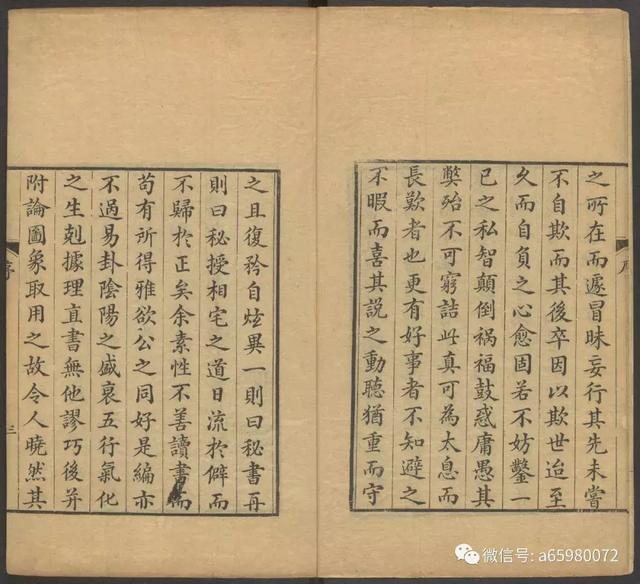 之所在而遽冒昧妄行其先未嘗
不自欺而其後卒因以欺世迨至
久而自負之心愈固若不妨鑿一
己之私智顛倒禍福鼓惑庸愚其
弊殆不可窮詰此真可為太息而
長歎者也更有好事者不知避之
不暇而喜其說之動聽猶重而守
之且復矜自炫異一則曰秘書再
則曰秘授相宅之道日流於僻而
不歸於正矣余素性不善讀書而
苟有所得雅欲公之同好是編亦
不過易卦陰陽之盛衰五行氣化
之生剋據理直書無他謬巧後并
附論圖象取用之故令人曉然其
序
三
微信号: a65980072